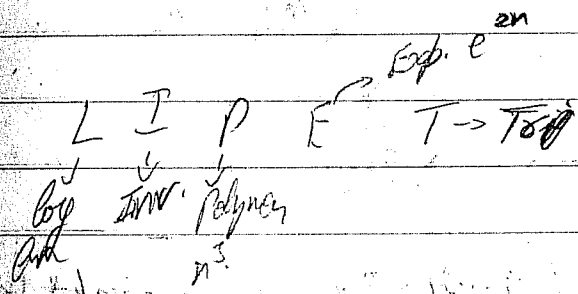 Exp. e^2n
L I P E T → Trig
log Inv. Polynom
n^3